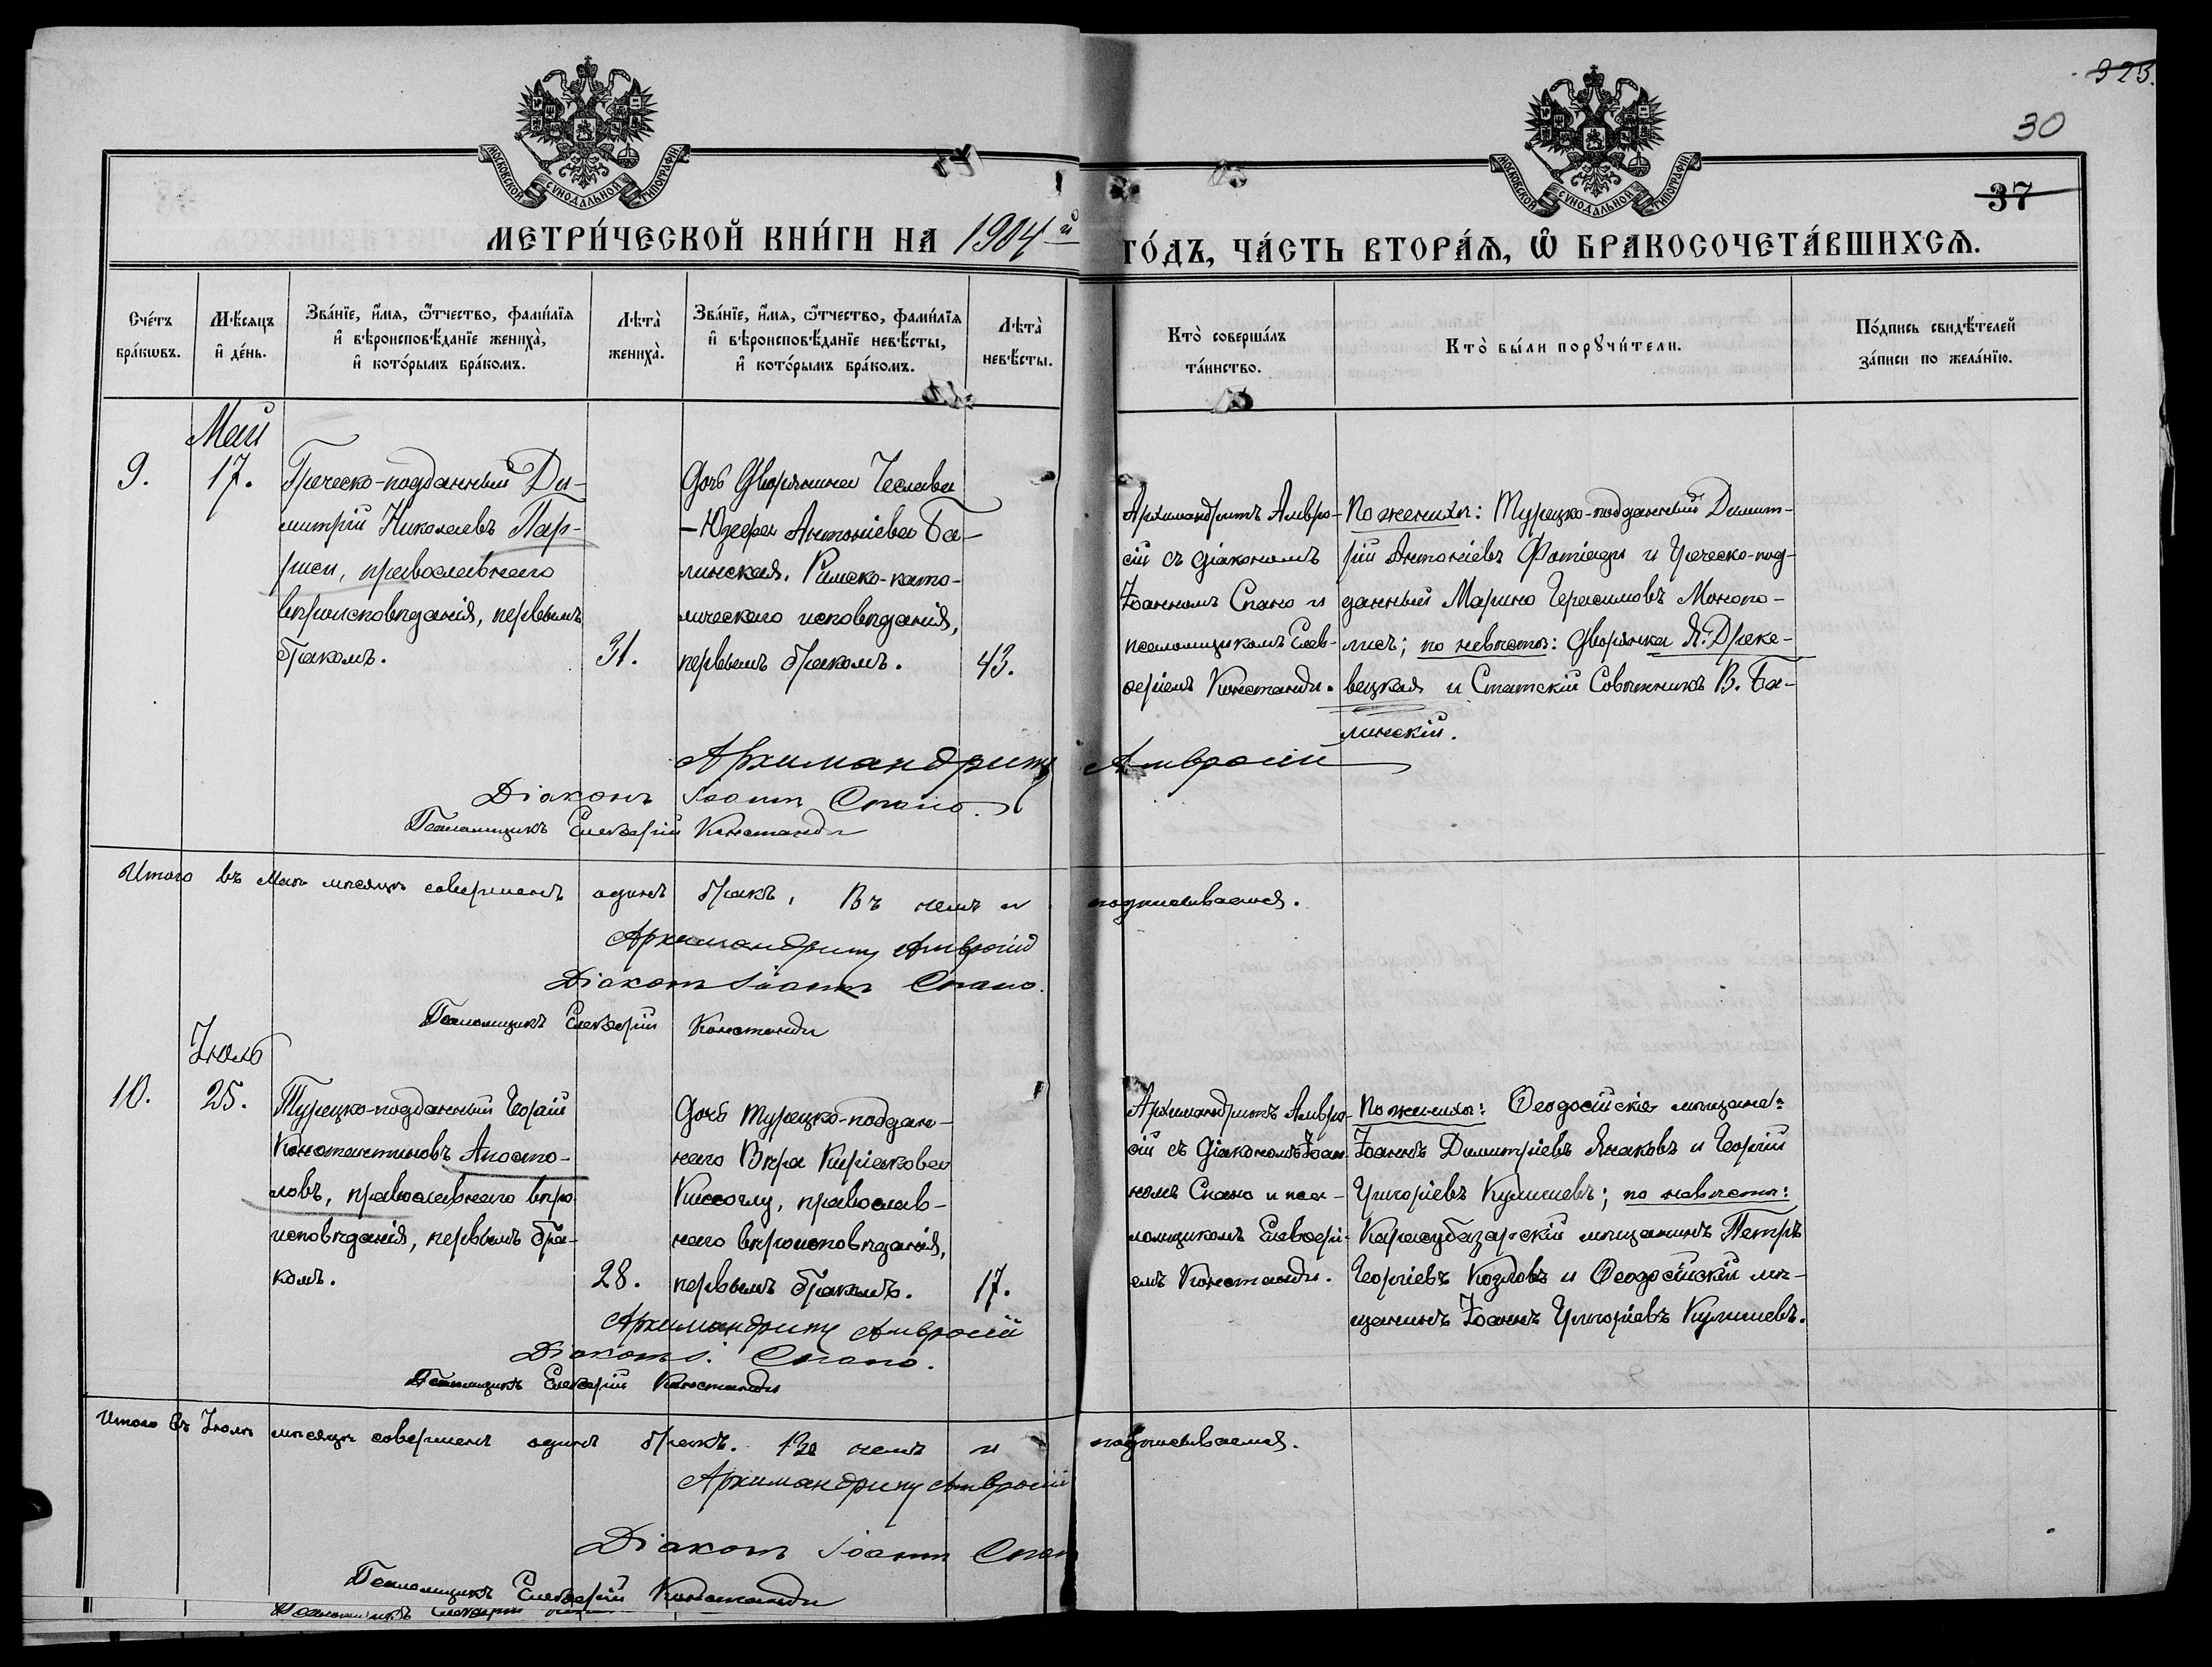 323.
30
37
МОСКОВСКОЙ СѴНОДАЛЬНОЙ ТИПОГРАФІИ
МОСКОВСКОЙ СѴНОДАЛЬНОЙ ТИПОГРАФІИ
МЕТРИ́ЧЕСКОЙ КНИ́ГИ НА 1904й ГО́ДЪ, ЧА́СТЬ ВТОРА́Я, Ѿ БРАКОСОЧЕТА́ВШИХСЯ.
Сче́тъ
бра́кѡвъ.
Мѣ́сяцъ
и҆ де́нь.
Зва́нїе, и҆́мя, ѻ҆́тчество, фами́лїя
и҆ вѣроисповѣ́данїе жениха̀,
и҆ кото́рымъ бра́комъ.
Лѣта̀
жениха̀.
Зва́нїе, и҆́мя, ѻ҆́тчество, фами́лїя
и҆ вѣроисповѣ́данїе невѣ́сты,
и҆ кото́рымъ бра́комъ.
Лѣта̀
невѣ́сты.
Кто̀ соверша́лъ
та́инство.
Кто̀ бы́ли порꙋчи́тели.
По́дпись свидѣ́телей
за́писи по жела́нїю.
Май
9.
17.
Греческо-подданный Ди-
митрій Николаевъ Пар-
риси, православнаго
вѣроисповѣданія, первымъ
бракомъ.
31.
Дочь Дворянина Чеслава
-Юзефа Антоніева Ба-
линская. Римско-като-
лическаго исповѣданія,
первымъ бракомъ.
43.
Архимандритъ Амвро-
сій съ діакономъ
Іоанномъ Спано и
псаломщикомъ Елев-
ѳеріемъ Констанди.
По женихѣ: Турецко-подданный Димит-
рій Антоніевъ Фотіади и Греческо-под-
данный Марино Герасимовъ Монопо-
лисъ; по невѣстѣ: Дворянка Я. Драке-
вецкая и Статскій Совѣтникъ В. Ба-
линскій.
Архимандритъ Амвросій
Діаконъ Іоаннъ Спано.
Псаломщикъ Елевѳерій Констанди
Итого въ Маѣ мѣсяцѣ совершенъ одинъ бракъ, Въ чемъ и подписываемся.
Архимандритъ Амвросій
Діаконъ Іоаннъ Спано.
Псаломщикъ Елевѳерій Констанди
Іюль
10.
25.
Турецко-подданный Георгій
Константиновъ Апосто-
ловъ, православнаго вѣро-
исповѣданія, первымъ бра-
комъ.
28.
Дочь турецко-поддан-
наго Вѣра Киріакова
Киссоглу, православ-
наго вѣроисповѣданія,
первымъ бракомъ.
17.
Архимандритъ Амвро-
сій съ діакономъ Іоан-
номъ Спано и пса-
ломщикомъ Елевѳері-
емъ Констанди.
По женихѣ: Ѳеодосійскіе мѣщане:
Іоаннъ Димитріевъ Янаковъ и Георгій
Григоріевъ Кулишевъ; по невѣстѣ:
Карасубазарскій мѣщанинъ Петръ
Георгіевъ Козловъ и Ѳеодосійскій мѣ-
щанинъ Іоаннъ Григоріевъ Кулишевъ.
Архимандритъ Амвросій
Діаконъ І. Спано.
Псаломщикъ Елевѳерій Констанди
Итого въ Іюлѣ мѣсяцѣ совершенъ одинъ бракъ. Въ чемъ и подписываемся.
Архимандритъ Амвросій
Діаконъ Іоаннъ Спан
Псаломщикъ Елевѳерій Констанди
Псаломщикъ Елевѳерій